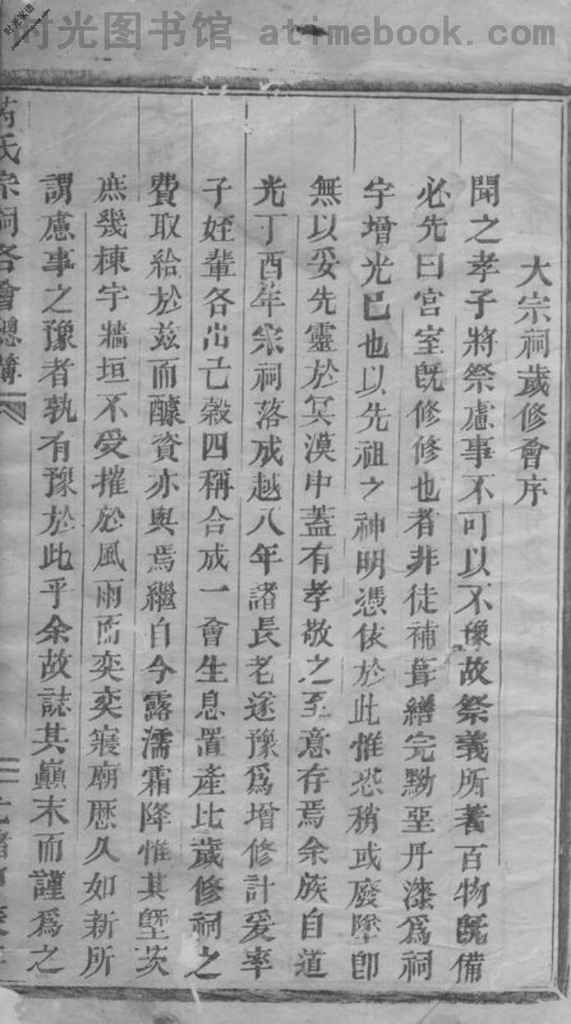 时光图书馆 atimebook.com
大宗祠歲修會序
聞之孝子將祭慮事不可以不豫故祭義所著百物既備
必先曰宮室既修修也者非徒補葺繕完黝堊丹漆為祠
宇增光已也以先祖之神明憑依於此惟恐稍或廢墜卽
無以妥先靈於冥漠中蓋有孝敬之至意存焉余族自道
光丁酉年宗祠落成越八年諸長老遂豫爲增修計爰率
子姪輩各出己穀四稱合成一會生息置產比歲修祠之
費取給於茲而醵資亦與焉繼自今露濡霜降惟其塈茨
庶幾棟宇牆垣不受摧於風雨而奕奕寢廟歷久如新所
謂慮事之豫者孰有豫於此乎余故誌其巔末而謹爲之
氏宗祠各會總簿